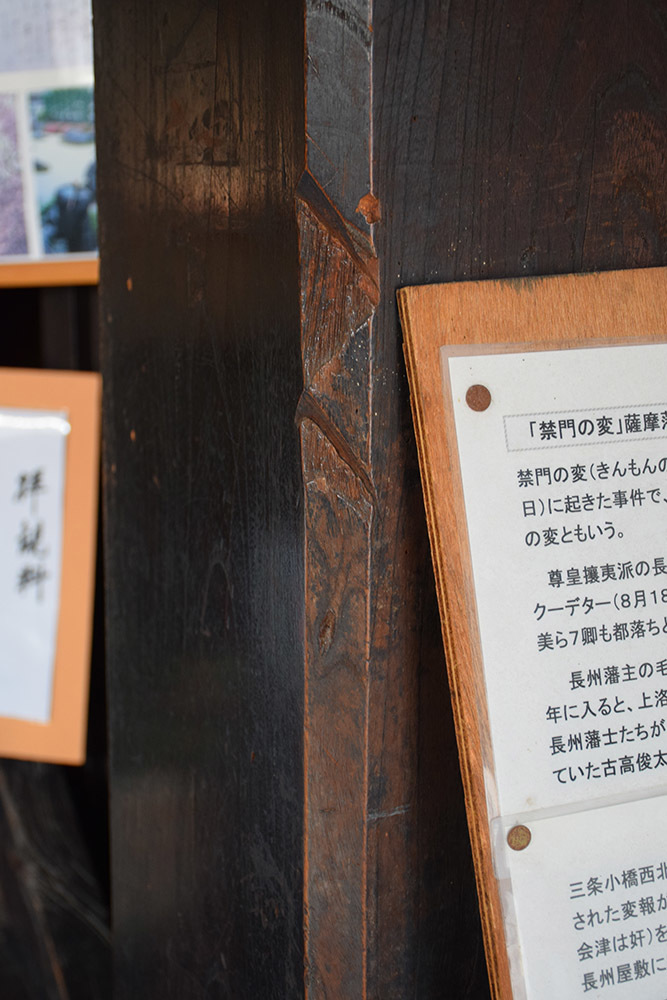 拝観料
「禁門の変」薩摩藩
禁門の変(きんもんの
日)に起きた事件で、
の変ともいう。
尊皇攘夷派の長
クーデター(8月18
美ら7卿も都落ちと
長州藩主の毛
年に入ると、上洛
長州藩士たちが
ていた古高俊太
三条小橋西北
された変報が
会津は奸)を
長州屋敷に